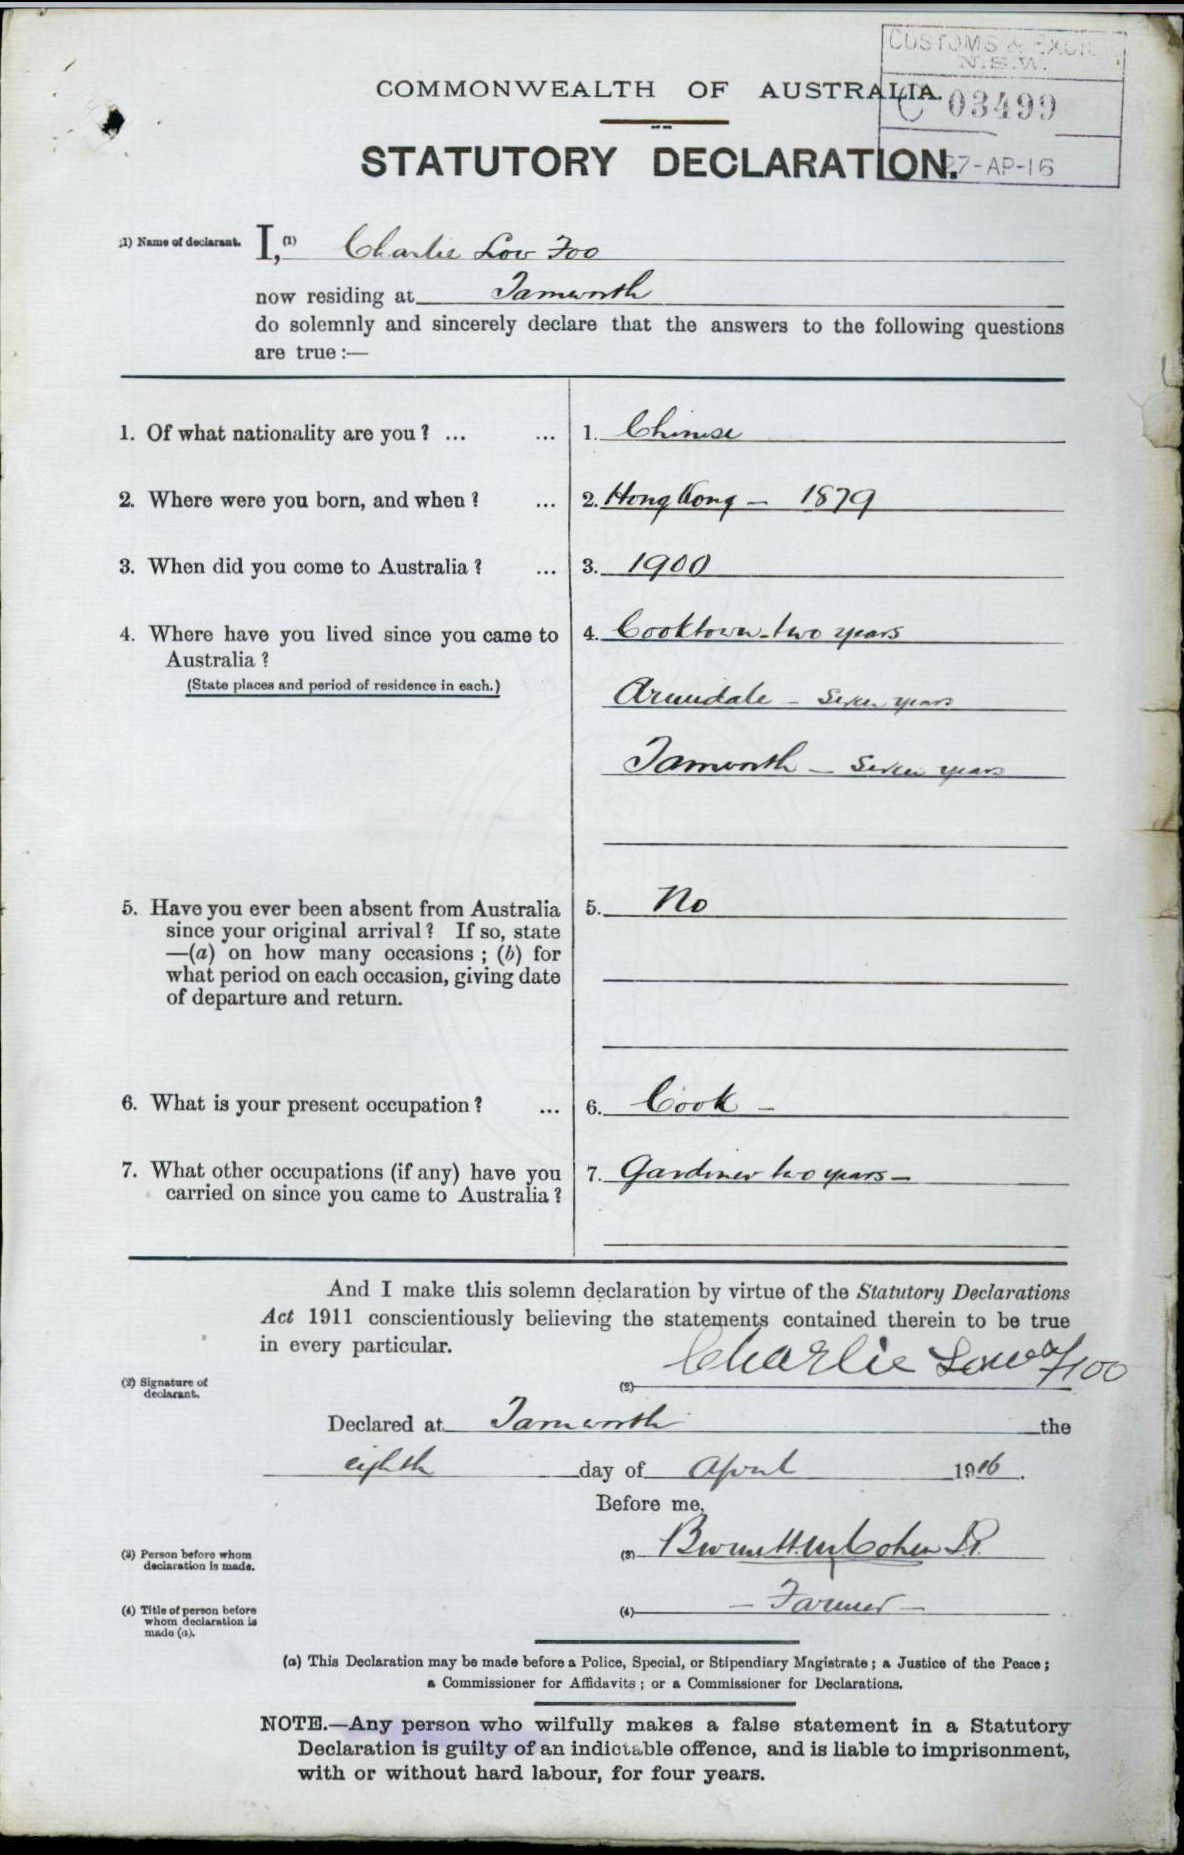 CUSTOMS & EXCISE
N.S.W.
C 03499
27-AP-16
COMMONWEALTH OF AUSTRALIA.
STATUTORY DECLARATION.
(1) Name of declarant. I, (1) Charlie Low Foo
now residing at Tamworth
do solemnly and sincerely declare that the answers to the following questions
are true:—
1. Of what nationality are you? ... ... 1. Chinese
2. Where were you born, and when? ... 2. Hong Kong — 1879
3. When did you come to Australia? ... 3. 1900
4. Where have you lived since you came to 4. Cooktown - two years
Australia?
(State places and period of residence in each.) Armidale - Seven years
Tamworth — Seven years
5. Have you ever been absent from Australia 5. No
since your original arrival? If so, state
—(a) on how many occasions; (b) for
what period on each occasion, giving date
of departure and return.
6. What is your present occupation? ... 6. Cook —
7. What other occupations (if any) have you 7. Gardiner two years —
carried on since you came to Australia?
And I make this solemn declaration by virtue of the Statutory Declarations
Act 1911 conscientiously believing the statements contained therein to be true
in every particular.
(2) Signature of
declarant. (2) Charlie Low Foo
Declared at Tamworth the
eighth day of April 1916.
Before me,
(3) Person before whom
declaration is made. (3) Cohen J.P.
(4) Title of person before
whom declaration is
made (a). (4) — Farmer —
(a) This Declaration may be made before a Police, Special, or Stipendiary Magistrate; a Justice of the Peace;
a Commissioner for Affidavits; or a Commissioner for Declarations.
NOTE.—Any person who wilfully makes a false statement in a Statutory
Declaration is guilty of an indictable offence, and is liable to imprisonment,
with or without hard labour, for four years.